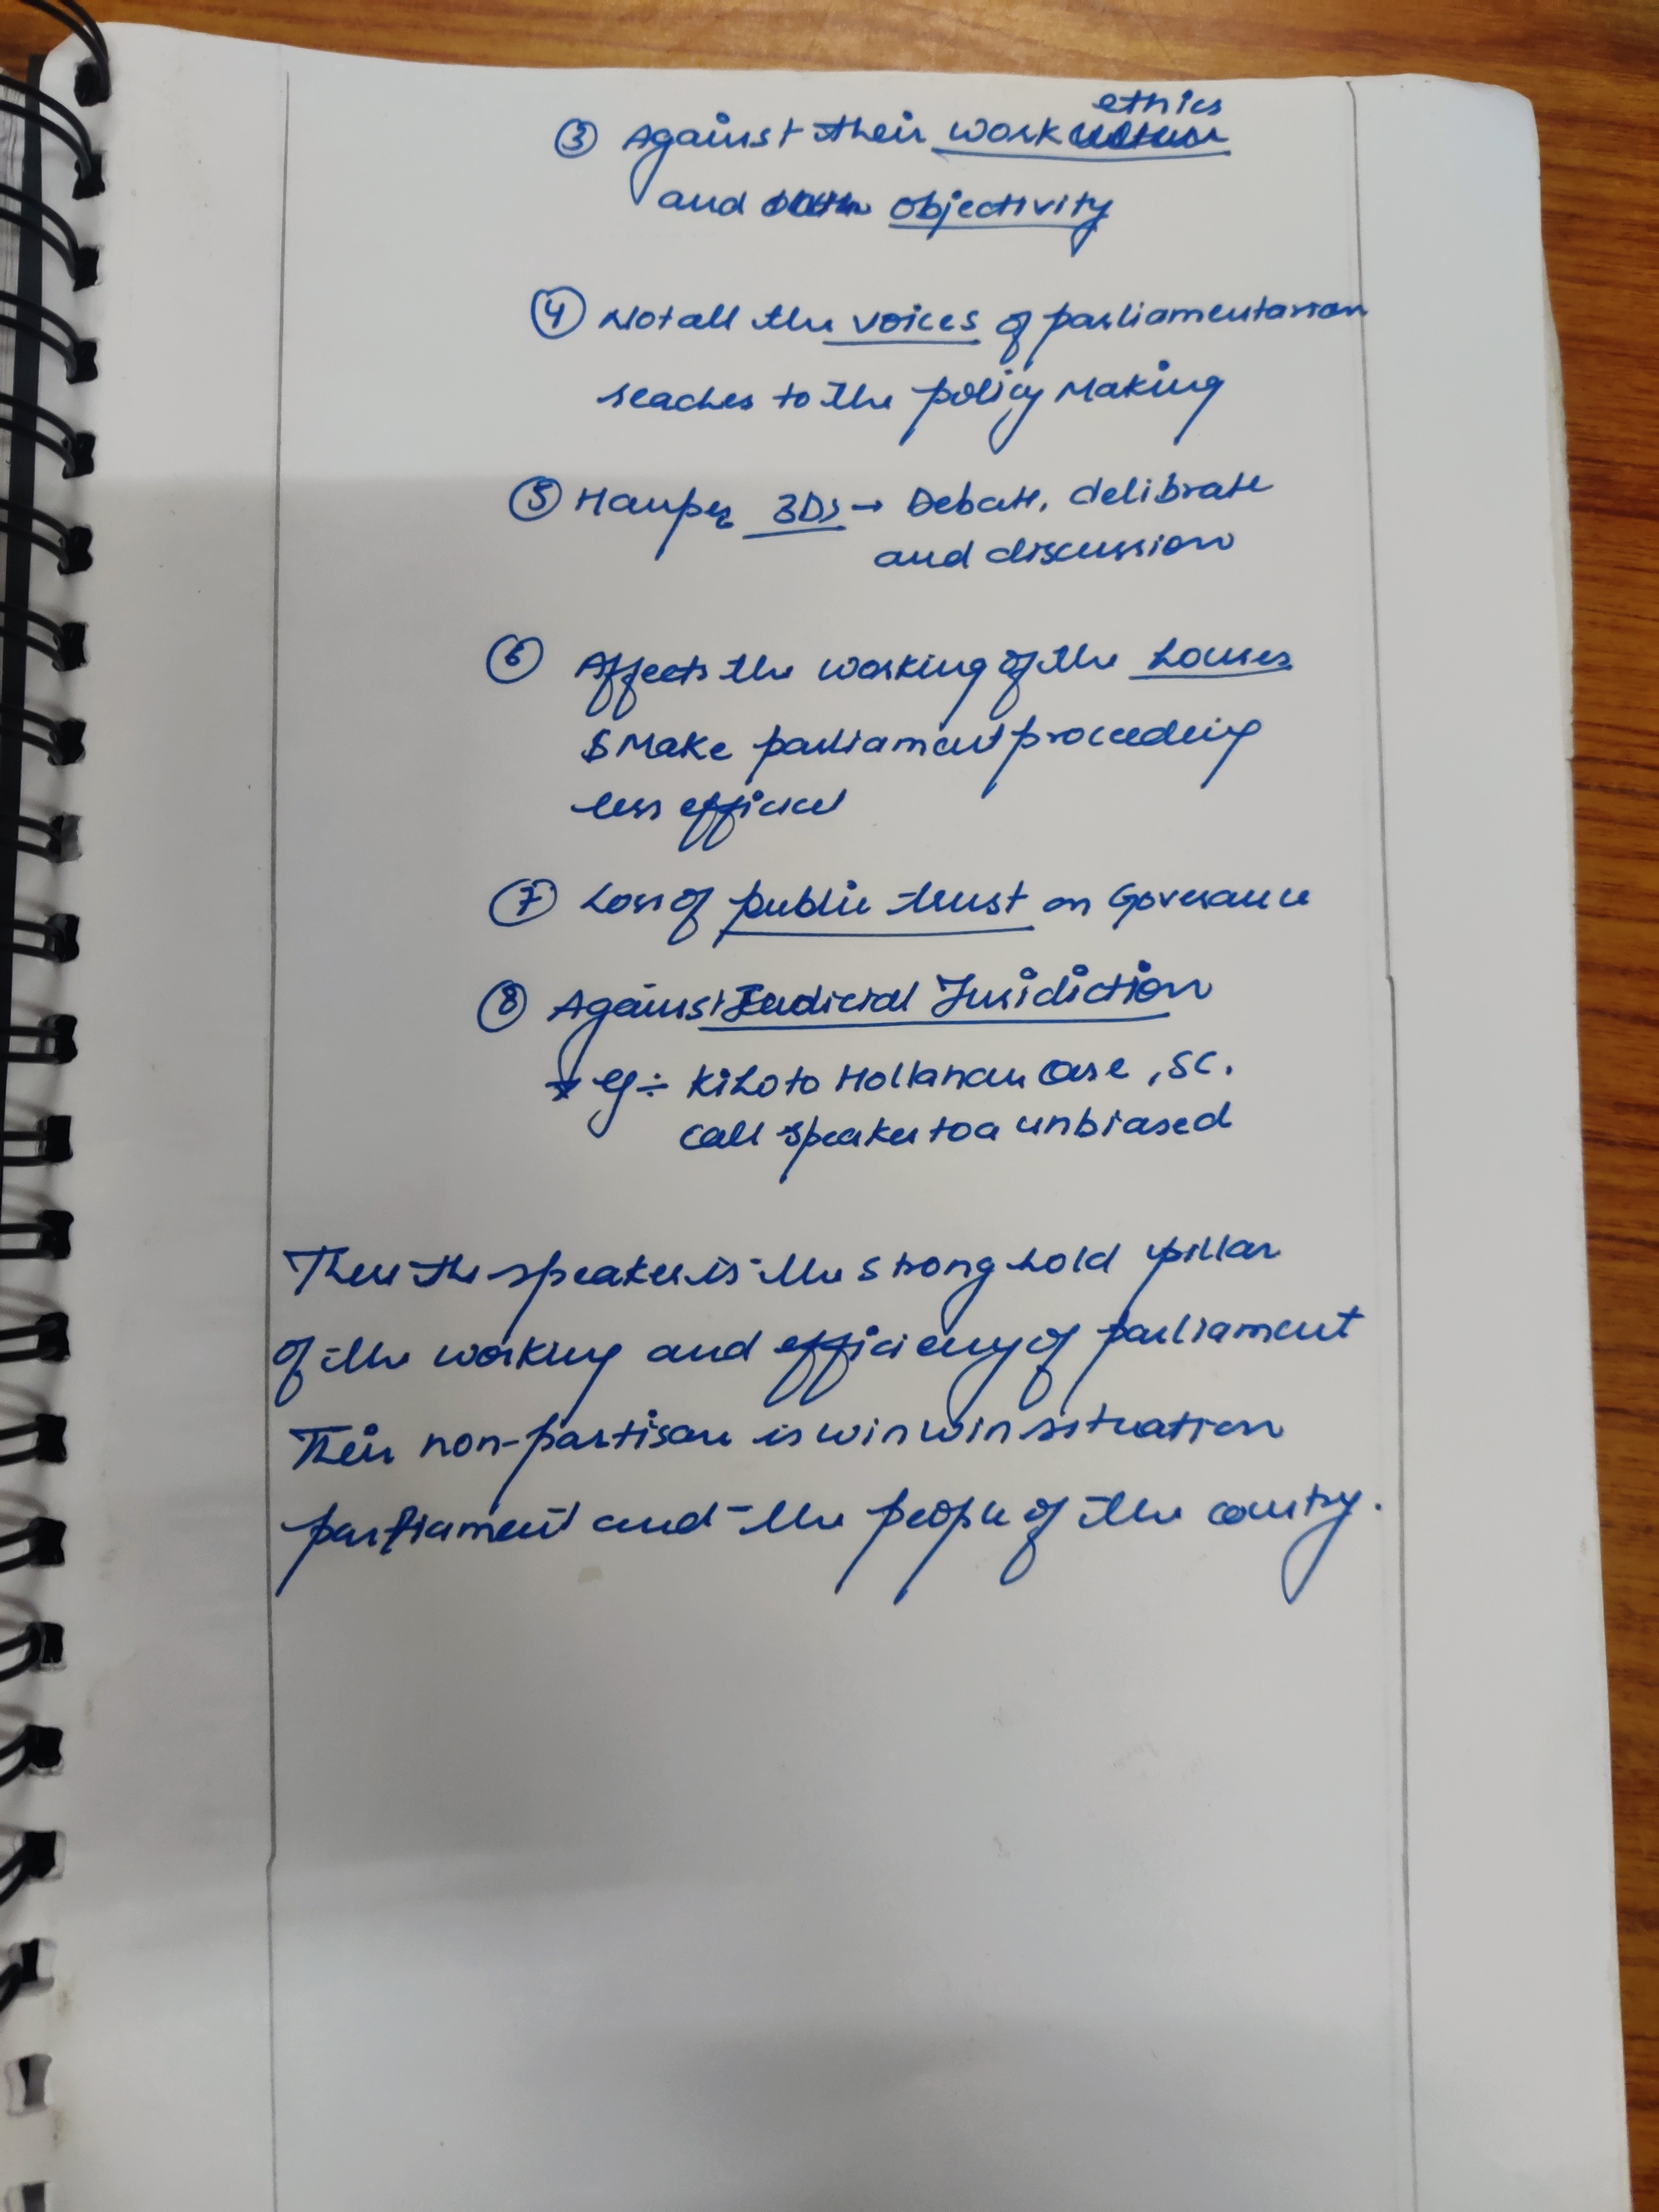 ethics
③ Against their work
and objectivity
④ Not all the voices of parliamentarian
reaches to the policy Making
⑤ Hamper 3Ds → Debate, delibrate
and discussion
⑥ Affects the working of the houses
& Make parliament proceeding
less efficiet
⑦ Loss of public trust on Goverance
⑧ Against Judicial Jurisidiction
eg ÷ Kihoto Hollahan Case, SC.
call speaker to a unbiased
the speaker is the strong hold pillar
of the working and efficiency of parliament
Their non-partisan is win win situation
parliament and the people of the country.